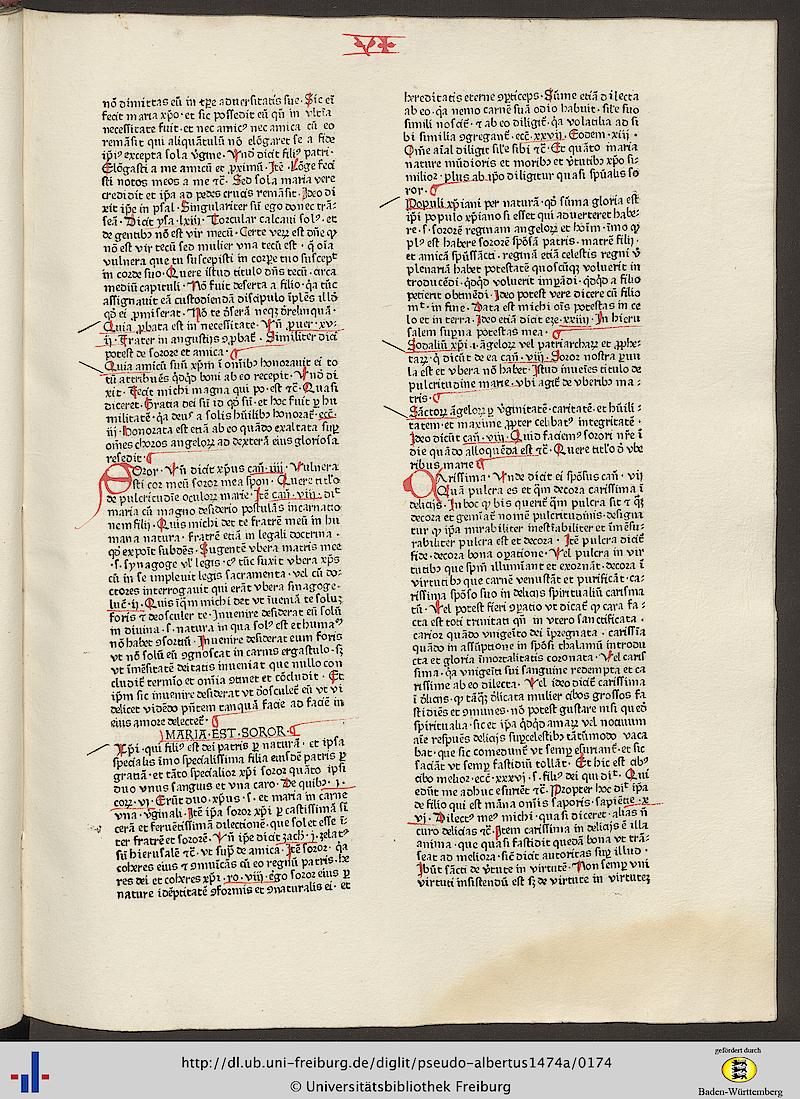 nō dimittas eū in tꝑe aduersitatis sue. Sic eī
fecit maria xp̄o. et sic possedit eū qn̄ in vltīa
necessitate fuit. et nec amicꝰ nec amica cū eo
remāsit qui aliquātulū nō elōgaret se a fide
ip̄iꝰ excepta sola v̄gine. Vn̄ dicit filiꝰ patri.
Elōgasti a me amicū et ꝓximū. Itē. Lōge feci
sti notos meos a me ⁊c̄. Sed sola maria vere
credidit et ip̄a ad pedes crucis remāsit. Ideo di
xit ip̄e in psal. Singulariter sū ego donec trā
seā. Dicit ysa. lxiij. Torcular calcaui solꝰ. et
de gentibꝰ nō est vir mecū. Certe veꝝ est dn̄e ꝙ
nō est vir tecū sed mulier vna tecū est. q̄ oīa
vulnera que tu suscepisti in corꝑe tuo suscepit
in corde suo. Quere istud titulo dn̄s tecū. circa
mediū capituli. Nō fuit deserta a filio. q̄a tūc
assignauit eā custodiendā discipulo īplēs illō
qd̄ ei ꝓmiserat. Nō te d̄serā neqꝫ d̄relinquā.
Quia ꝓbata est in necessitate. Vn̄ ꝓuer. xv
ij. Frater in angustijs ꝯꝓbat̄. Similiter dici
potest de sorore et amica.
Quia amicū suū xp̄m ī oīnibꝰ honorauit ei to
tū attribuēs qd̄qd̄ boni ab eo recepit. Vnd̄ di
xit. Fecit michi magna qui po. est ⁊c̄. Quasi
diceret. Gratia dei sū id qd̄ sū. et hoc fuit ꝑ hu
militatē. q̄a deus a solis hūilibꝰ honorat̄. ecc̄.
iij. Honorata est etiā ab eo quādo exaltata suꝑ
om̄es choros angeloꝝ ad dexterā eius gloriosa
resedit.
Soror. Vn̄ dicit xp̄us can̄. iiij. Vulnera
sti cor meū soror mea spon. Quere titl'o
de pulcritudīe oculoꝝ marie. Itē can̄. viij. dīt
maria cū magno desiderio postulās incarnatio
nem filij. Quis michi det te fratrē meū in hu
mana natura. fratrē etiā in legali doctrina.
qd̄ exponīt subdēs. Sugentē vbera matris mee
.s. synagoge vl' legis. cꝰ tūc suxit vbera xp̄s
cū in se impleuit legis sacramenta. vel cū do
ctores interrogauit qui erāt vbera sinagoge.
luc̄. ij. Quis īqm̄ michi det vt īueniā te soluꝫ
foris ⁊ deosculer te. Inuenire desiderat eū solū
in diuina .s. natura in qua solꝰ est et humaꝰ
nō habet ꝯsortiū. Inuenire desiderat eum foris
vt nō solū eū ꝯgnoscat in carnis ergastulo. sꝫ
vt īmēsitatē deitatis inueniat que nullo con
cludit̄ termīo et om̄ia ꝯtinet et cōcludit. Et
ip̄m sic inuenire desiderat vt d̄osculet̄ eū vt vi
delicet vidēdo pn̄tem tanquā facie ad faciē in
eius amore delectet̄.
MARIA. EST. SOROR.
Xp̄i. qui filiꝰ est dei patris ꝑ naturā. et ipsa
specialis īmo specialissima filia eiusdē patris ꝑ
gratiā. et tāto specialior xp̄i soror quāto ipsi
duo vnus sanguis et vna caro. De quibꝰ .j.
corꝝ. vj. Erūt duo. xp̄us .s. et maria in carne
vna. v̄ginali. Itē ip̄a soror xp̄i ꝑ castissimā sī
cerā et feruētissimā dilectionē. que solet esse ī
ter fratrē et sororē. Vn̄ ip̄e dicit zach. j. zelatꝰ
sū hierusalē ⁊c̄. vt supͣ de amica. Itē soror. q̄a
coheres eius ⁊ ꝯmūicās cū eo regnū patris. he
res dei et coheres xp̄i. ro. viij. ego soror eius ꝑ
nature idēptitatē ꝯformis et ꝯnaturalis ei. et
hereditatis eterne ꝯꝑticeps. Sūme etiā dilecta
ab eo. q̄a nemo carnē suā odio habuit. sil'e suo
simili noscit̄. ⁊ ab eo diligit̄. q̄a volatilia ad si
bi similia ꝯgregant̄. ecc̄. xxvij. Eodem. xiij.
Om̄e aīal diligit sil'e sibi ⁊c̄. Et quāto maria
nature mūdioris et moribꝰ et v̄tutibꝰ xp̄o si
milior. plus ab ip̄o diligitur quasi spūalis so
ror.
Populi xp̄iani per naturā. qd̄ sūma gloria est
ip̄i populo xp̄iano si esset qui aduerteret habe
re .s. sororē reginam angeloꝝ et hoīm. īmo ꝙ
plꝰ est habere sororē spōsā patris. matrē filij.
et amicā spūssācti. reginā etiā celestis regni ꝙ
plenariā habet potestatē quoscūqꝫ voluerit in
troducēdi. qd̄qd̄ voluerit impādi. qd̄qd̄ a filio
petierit obtinēdi. Ideo potest vere dicere cū filio
mt̄. in fine. Data est michi oīs potestas in ce
lo et in terra. Ideo etiā dicit eze. xxiiij. In hieru
salem supna potestas mea.
Sodaliū xp̄i .i. āgeloꝝ vel patriarchaꝝ et ꝓphe
taꝝ. q̄ dicūt de ea can̄. viij. Soror nostra ꝑuu
la est et vbera nō habet. Istud inueīes titulo de
pulcritudine marie. vbi agit̄ de vberibꝰ ma
tris.
Sāctoꝝ āgeloꝝ ꝑ v̄ginitatē. caritatē. et hūili
tatem. et maxime ꝓpter celibatꝰ integritatē.
Ideo dicūt can̄. viij. Quid faciemꝰ sorori nr̄e ī
die quādo alloquēda est ⁊c̄. Quere titl'o d̄ vbe
ribus marie
Carissima. Vnde dicit ei spōsus can̄. vij
Quā pulcra es et qm̄ decora carissima ī
delicijs. In hoc ꝙ bis querit̄ qm̄ pulcra sit ⁊ qꝫ
decora et gemīat̄ nomē pulcritudinis. designa
tur ꝙ ip̄a mirabiliter inestīabiliter et īmēsu
rabiliter pulcra est et decora. Itē pulcra dicit̄
fide. decora bona oꝑatione. Vel pulcra in vir
tutibꝰ que spm̄ illumīant et exornāt. decora ī
virtutibꝰ que carnē venustāt et purificāt. ca
rissima spōso suo in delicijs spiritualiū carisma
tū. Vel potest fieri ꝯꝑatio vt dicat̄ ꝙ cara fa
cta est toti trinitati qn̄ in vtero sanctificata.
carior quādo vnigeītō dei īpregnata. carissīa
quādo in assūptione in spōsi thalamū introdu
cta et gloria īmortalitatis coronata. Vel caris
sima. q̄a vnigeīti sui sanguine redempta et ca
rissime ab eo dilecta. Vel ideo dicit̄ carissima
ī d̄licijs. ꝙ tāqꝫ d̄licata mulier cibos grossos fa
stidiēs et ꝯmunes. nō potest gustare nisi queđ
spiritualia. sic et ip̄a qd̄qd̄ amaꝝ vel nociuum
aīe respuēs delicijs supcelestibꝰ tātūmodo vaca
bat. que sic comedunt̄ vt semꝑ esuriant̄. et sic
saciāt vt semꝑ fastidiū tollāt. Et hic est cibꝰ
cibo melior. ecc̄. xxxvj .s. filꝰ dei qui dīt. Qui
edūt me adhuc esuriēt ⁊c̄. Propter hoc dīt ip̄a
de filio qui est māna om̄is saporis. sapiētie. x
vj. Dilectꝰ meꝰ michi. quasi diceret. alias n̄
curo delicias ⁊c̄. Item carissima in delicijs ē illa
anima. que quasi fastidit quedā bona vt trā
seat ad meliora. sic̄ dicit autoritas suꝑ illud.
Ibūt sācti de v̄tute in virtutē. Non semꝑ vni
virtuti insistendū est sꝫ de virtute in virtuteꝫ
http://dl.ub.uni-freiburg.de/diglit/pseudo-albertus1474a/0174
© Universitätsbibliothek Freiburg
gefördert durch
Baden-Württemberg